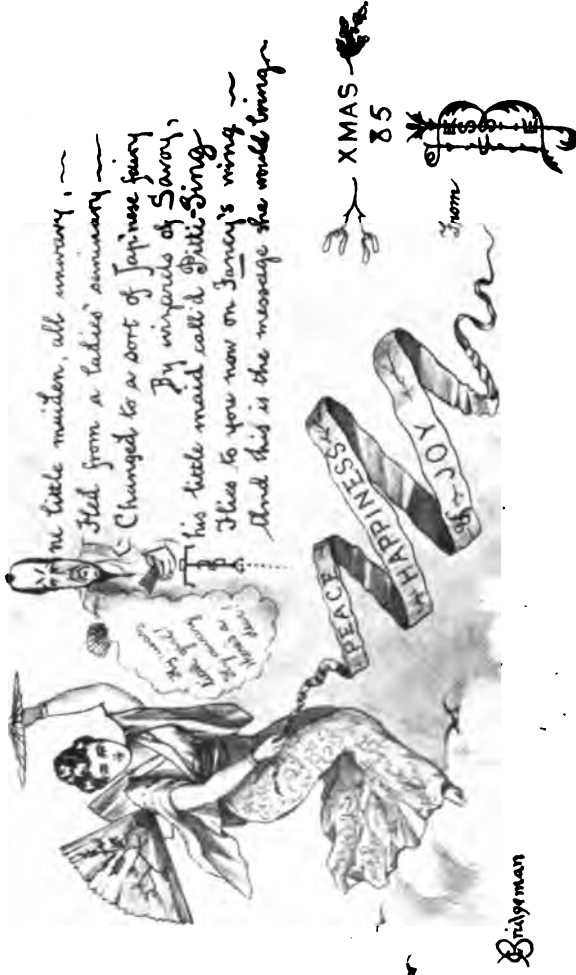 One little maiden, all unwary, —
Fled from a ladies' seminary —
Changed to a sort of Jap'nese fairy
By wizards of Savoy,
This little maid call'd Pitti-Sing
Flies to you now on Fancy's wing —
And this is the message she would bring
PEACE
HAPPINESS
& JOY
XMAS
85
From
Bridgeman